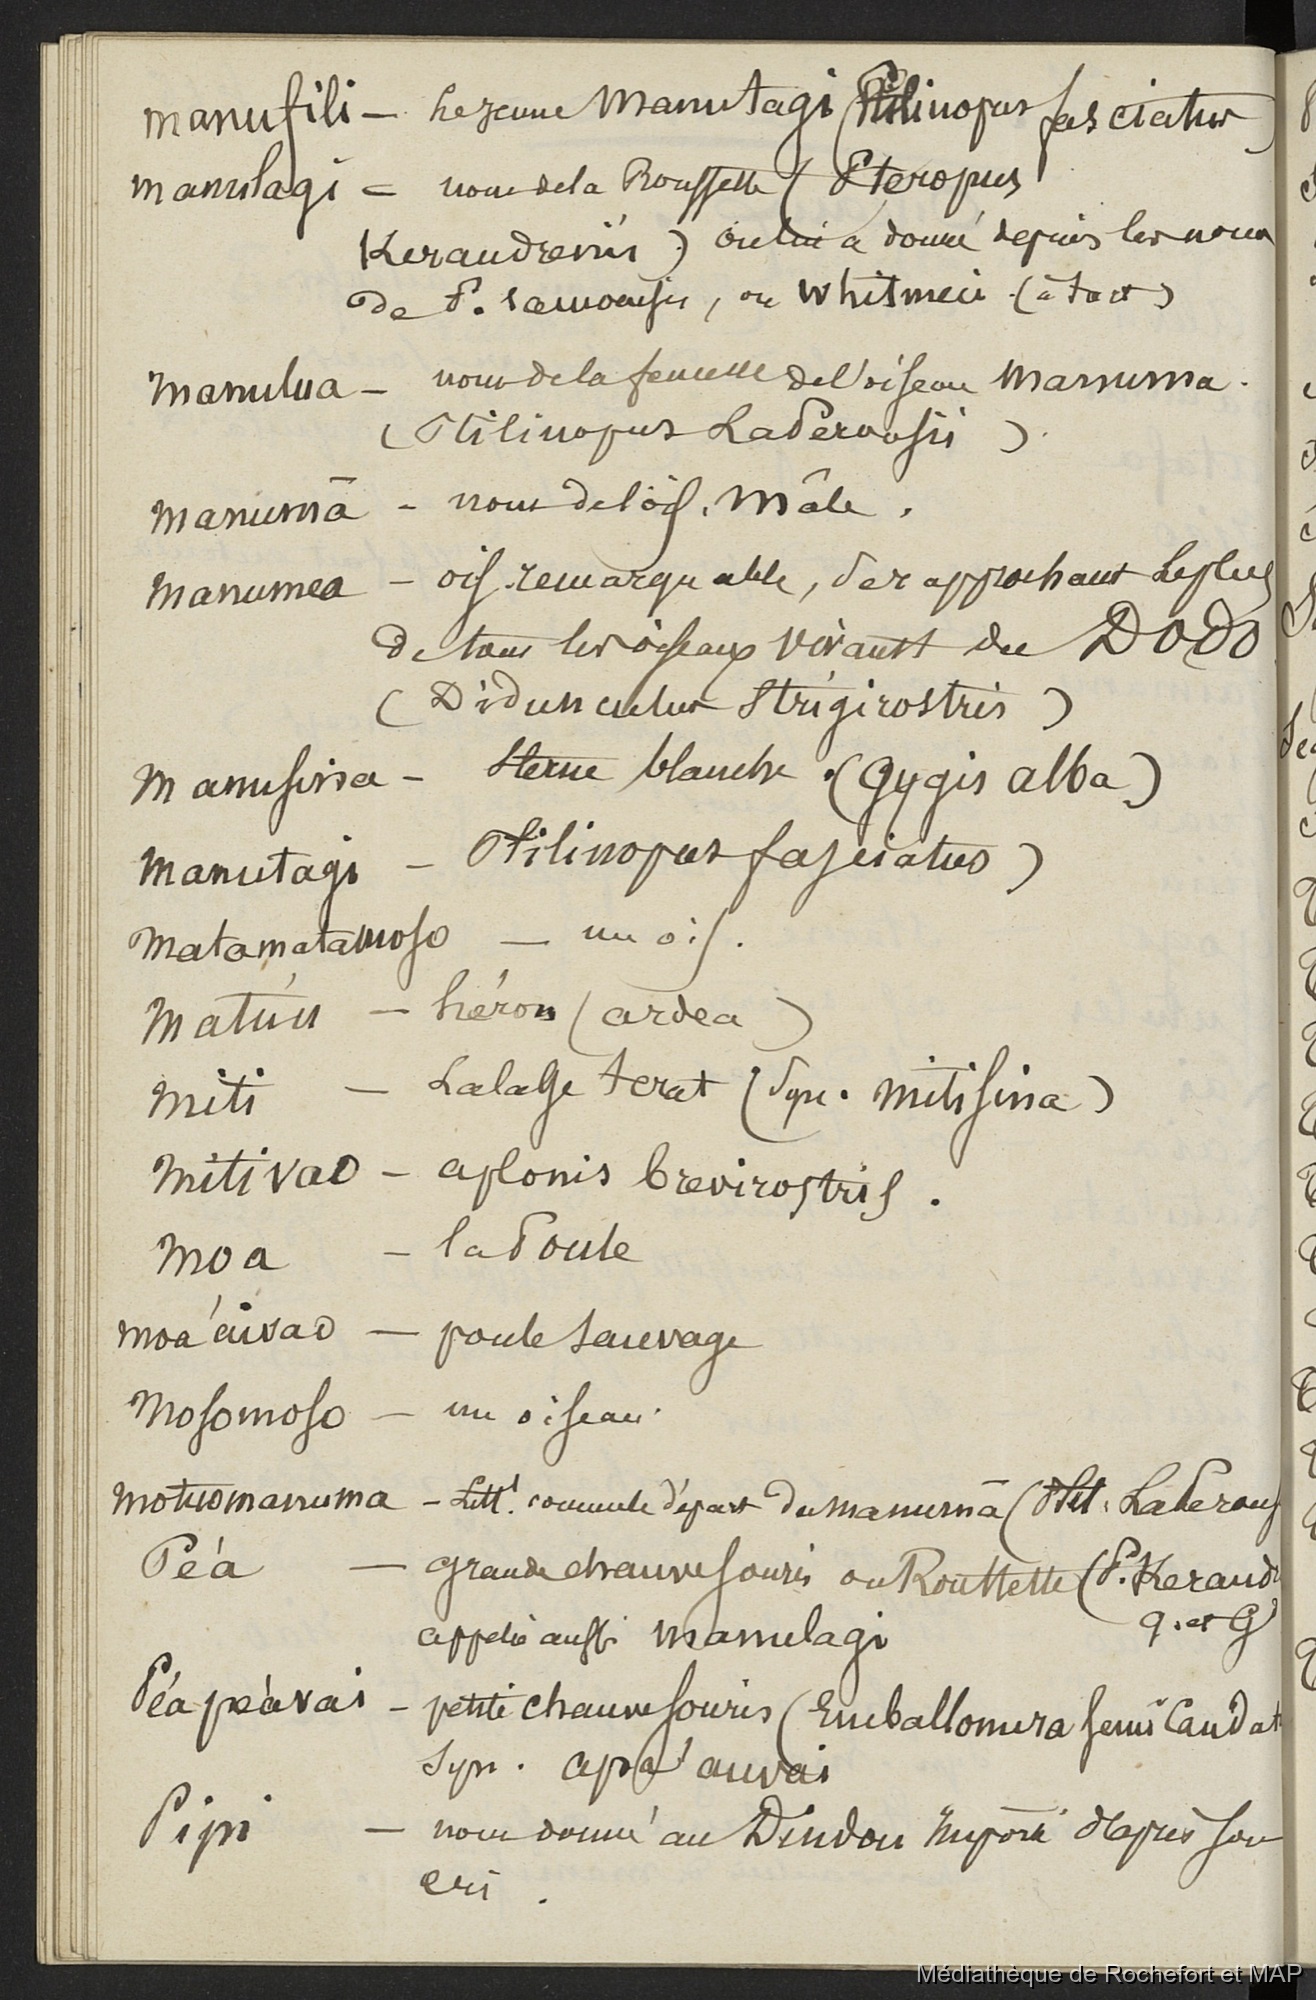 manufili — le jeune manutagi (Ptilinopus fasciatus)
manulagi — nom de la Roussette (Pteropus
Keraudrenii) on lui a donné depuis les noms
de P. samoensis, ou Whitmeii (à tort)
manulua — nom de la femelle de l'oiseau manuma.
(Ptilinopus LaPerousii)
manumā - nom de l'ois. mâle.
manumea - ois. remarquable, se rapprochant le plus
de tous les oiseaux vivants du DODO
(Didunculus Strigirostris)
manusina - Sterne blanche. (Gygis alba)
manutagi - Ptilinopus fasciatus)
matamatamoso — un ois.
matú'u — héron (ardea)
miti — Lalage terat (Syn. mitisina)
mitivao - aplonis brevirostris.
moa - la Poule
moa'aivao — poule sauvage
mosomoso — un oiseau.
motuomanuma - Litt! départ du manumā (Ptil. LaPerous
Péa — grande chauve souris ou Roussette (P. Keraudr
appelée aussi manulagi q. et G
Péapéavai - petite chauve souris (Emballonura semi Caudat
Syn. apa'auvai
Pipi — nom donné au Dindon importé d'après son
cri.
Médiathèque de Rochefort et MAP